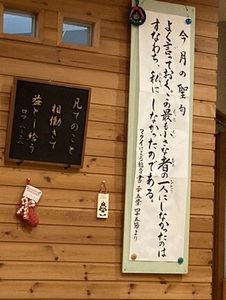 今月の聖句
よく言っておく。この最も小さな者の一人にしなかったのは
すなわち、私にしなかったのである。
マタイによる福音書 二十五章 四十五節より
凡てのこと
相働きて
益となる
ロマ 八・二八